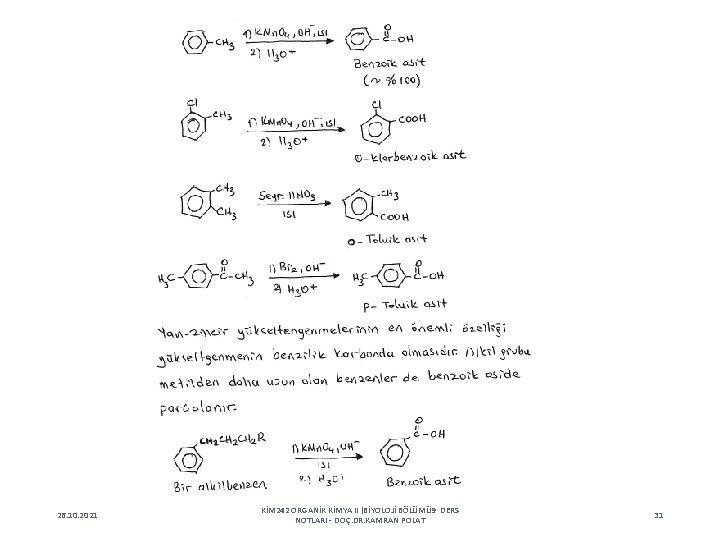 CH₃ 1) KMnO₄, OH⁻, ısı O
2) H₃O⁺ C-OH
Benzoik asit
(~ %100)
Cl Cl
CH₃ 1) KMnO₄, OH⁻, ısı COOH
2) H₃O⁺
o-klorbenzoik asit
CH₃ Seyr. HNO₃ CH₃
CH₃ ısı COOH
o-Toluik asit
O O
H₃C C-CH₃ 1) Br₂, OH⁻ H₃C C-OH
2) H₃O⁺
p-Toluik asit
Yan-zincir yükseltgenmelerinin en önemli özelliği
yükseltgenmenin benzilik karbonda olmasıdır. Alkil grubu
metilden daha uzun olan benzenler de benzoik aside
parçalanır.
O
CH₂CH₂CH₂R 1) KMnO₄, OH⁻ C-OH
ısı
2) H₃O⁺
Bir alkilbenzen Benzoik asit
26.10.2021
KİM242 ORGANİK KİMYA II (BİYOLOJİ BÖLÜMÜ)- DERS
NOTLARI - DOÇ.DR.KAMRAN POLAT
31